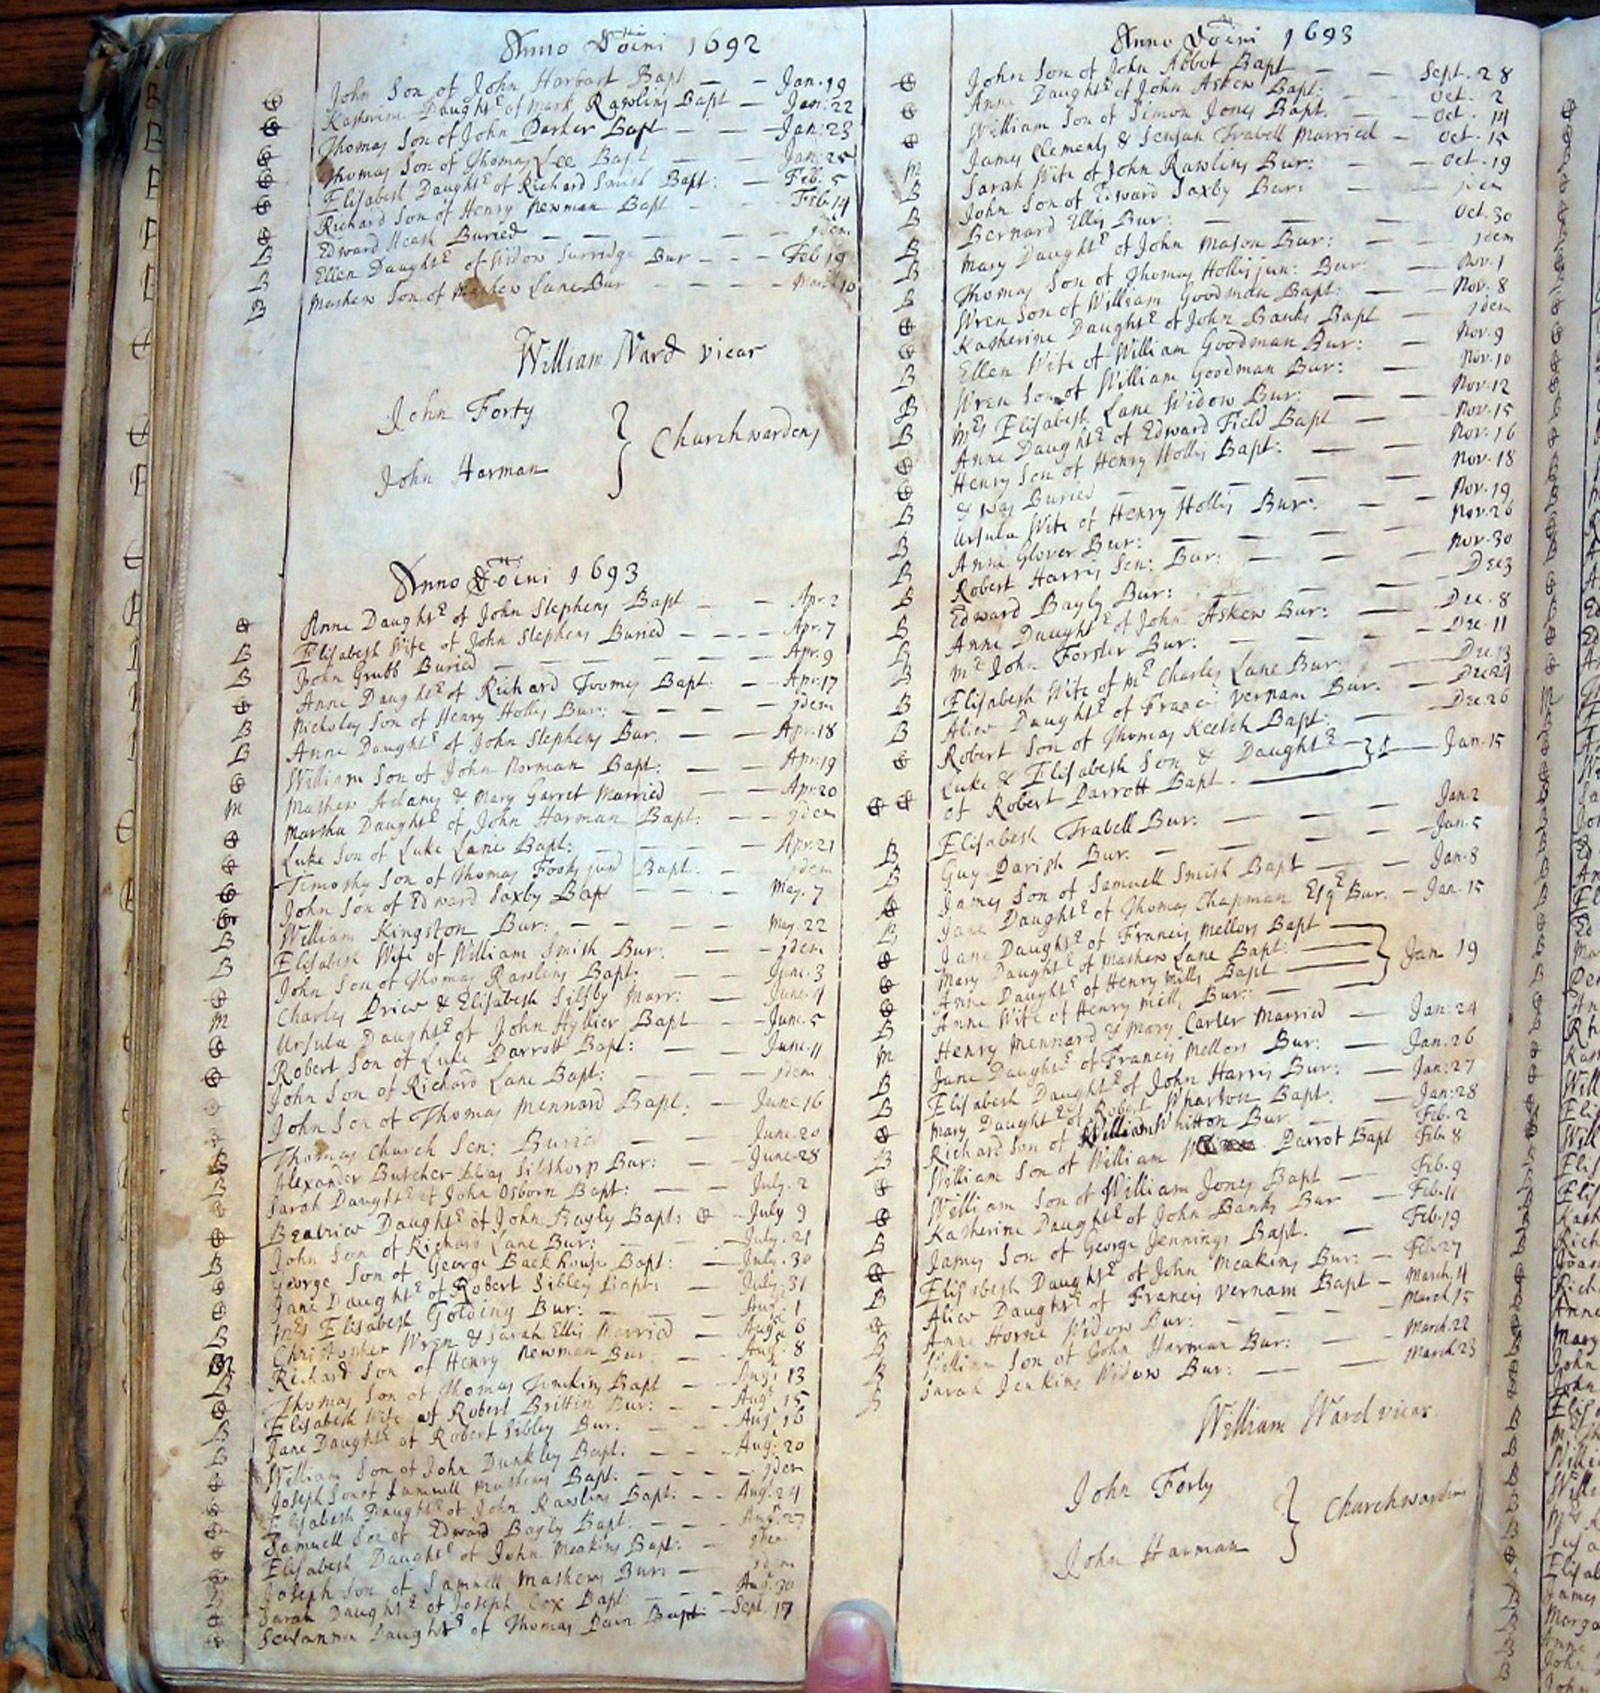 Anno Dom̄ini 1692
John Son of John Harbart Bapt — — Jan. 19
Katherine Daughtr of Mark Rawlins Bapt — Jan: 22
Thomas Son of John Parker Bapt — — — Jan: 23
Thomas Son of Thomas Lee Bapt — — Jan: 25
Elisabeth Daughtr of Richard Smith Bapt: — Feb. 5
Richard Son of Henry Newman Bapt — — Feb 14
Edward Heath Buried — — — — — — jdem
Ellen Daughtr of Widow Surridge Bur — — — Feb 19
Mathew Son of Mathew Lane Bur — — — — March 10
William Ward vicar
John Forty
Churchwardens
John Harman
Anno Dom̄ini 1693
Anne Daughtr of John Stephens Bapt — — Apr. 2
Elisabeth Wife of John Stephens Buried — — — Apr. 7
John Grubb Buried — — — — — — Apr. 9
Anne Daughtr of Richard Toomes Bapt: — Apr. 17
Nicholas Son of Henry Hollis Bur: — — — — jdem
Anne Daughtr of John Stephens Bur: — — — Apr. 18
William Son of John Norman Bapt: — — Apr. 19
Mathew Adams & Mary Garret Married — — Apr. 20
Martha Daughtr of John Harman Bapt: — — jdem
Luke Son of Luke Lane Bapt: — — — — Apr. 21
Timothy Son of Thomas Bapt: — jdem
John Son of Edward Saxby Bapt — — — May. 7
William Kingston Bur: — — — — May. 22
Elisabeth Wife of William Smith Bur: — — jdem
John Son of Thomas Rawlins Bapt: — — June. 3
Charles Price & Elisabeth Silsby Marr: — June. 4
Ursula Daughtr of John Bapt — — June. 5
Robert Son of Luke Parrott Bapt: — — June. 11
John Son of Richard Lane Bapt: — — — jdem
John Son of Thomas Mennard Bapt: — June 16
Thomas Church Sen: Buried — — June. 20
Alexander Butcher alias Silsthorp Bur: — June. 28
Sarah Daughtr of John Osborn Bapt: — — July. 2
Beatrice Daughtr of John Bayly Bapt: — July 9
John Son of Richard Lane Bur: — — — July. 21
George Son of George Backhouse Bapt: — July. 30
Jane Daughtr of Robert Sibley Bapt: — — July. 31
Mrs Elisabeth Golding Bur: — — — Aug: 1
Christopher Wren & Sarah Ellis Married — Aug: 6
Richard Son of Henry Newman Bur — — Aug: 8
Thomas Son of Thomas Timkins Bapt — — Aug: 13
Elisabeth Wife of Robert Brittin Bur: — — Aug: 15
Jane Daughtr of Robert Sibley Bur: — — Aug: 16
William Son of John Dunkley Bapt: — — — Aug: 20
Joseph Son of Samuell Mathews Bapt: — — — jdem
Elisabeth Daughtr of John Rawlins Bapt: — — Aug: 24
Samuell Son of Edward Bagly Bapt. — — — Aug: 27
Elisabeth Daughtr of John Meakins Bapt: — jdem
Joseph Son of Samuell Mathews Bur: — jdem
Sarah Daughtr of Joseph Cox Bapt: — — — Aug: 30
Susanna Daughtr of Thomas Pain Bapt: — Sept. 17
Anno Dom̄ini 1693
John Son of John Abbot Bapt — — Sept. 28
Anne Daughtr of John Askew Bapt: — — Oct. 2
William Son of Simon Jones Bapt. — — Oct. 14
James Clements & Sensan Trabell Married — Oct. 15
Sarah Wife of John Rawlins Bur: — — Oct. 19
John Son of Edward Saxby Bur: — — jdem
Bernard Ellis Bur: — — — — Oct. 30
Mary Daughtr of John Mason Bur: — — jdem
Thomas Son of Thomas Hollis jun: Bur: — Nov. 1
Wren Son of William Goodman Bapt: — — Nov. 8
Katherine Daughtr of John Banks Bapt — jdem
Ellen Wife of William Goodman Bur: — — Nov. 9
Wren Son of William Goodman Bur: — Nov. 10
Mrs Elisabeth Lane Widow Bur: — — Nov. 12
Anne Daughtr of Edward Field Bapt — — Nov. 15
Henry Son of Henry Hollis Bapt: — — Nov. 16
& was Buried — — — — — Nov. 18
Ursula Wife of Henry Hollis Bur: — — Nov. 19
Anne Glover Bur: — — — — Nov. 26
Robert Harris Sen: Bur: — — — Nov. 30
Edward Bayly Bur: — — — — Dec 3
Anne Daughtr of John Askew Bur: — — Dec. 8
Mr John Forster Bur: — — — — Dec. 11
Elisabeth Wife of Mr Charles Lane Bur: — Dec. 13
Alice Daughtr of Francis Vernam Bur. — Dec. 24
Robert Son of Thomas Keetch Bapt: — Dec. 26
Luke & Elisabeth Son & Daughtr
of Robert Parrott Bapt. — Jan. 15
Elisabeth Trabell Bur: — — — Jan. 2
Guy Parish Bur. — — — — Jan. 5
James Son of Samuell Smith Bapt — — Jan. 8
Jane Daughtr of Thomas Chapman Esqr Bur. — Jan. 15
Jane Daughtr of Francis Mellors Bapt
Mary Daughtr of Mathew Lane Bapt: — Jan 19
Anne Daughtr of Henry Mills Bapt
Anne Wife of Henry Mills Bur: —
Henry Mennard & Mary Carter Married — Jan: 24
Jane Daughtr of Francis Mellors Bur: — Jan. 26
Elisabeth Daughtr of John Harris Bur: — Jan: 27
Mary Daughtr of Robert Wharton Bapt. — Jan: 28
Richard Son of William Whitton Bur — Feb. 2
William Son of William Parrot Bapt Feb. 8
William Son of William Jones Bapt — Feb. 9
Katherine Daughtr of John Banks Bur — Feb. 11
James Son of George Jennings Bapt. — Feb. 19
Elisabeth Daughtr of John Meakins Bur: — Feb. 27
Alice Daughtr of Francis Vernam Bapt — March. 4
Anne Horne Widow Bur: — — — March. 15
William Son of John Harman Bur: — — March. 22
Sarah Jenkins Widow Bur: — — March. 23
William Ward vicar
John Forty
Churchwardens
John Harman